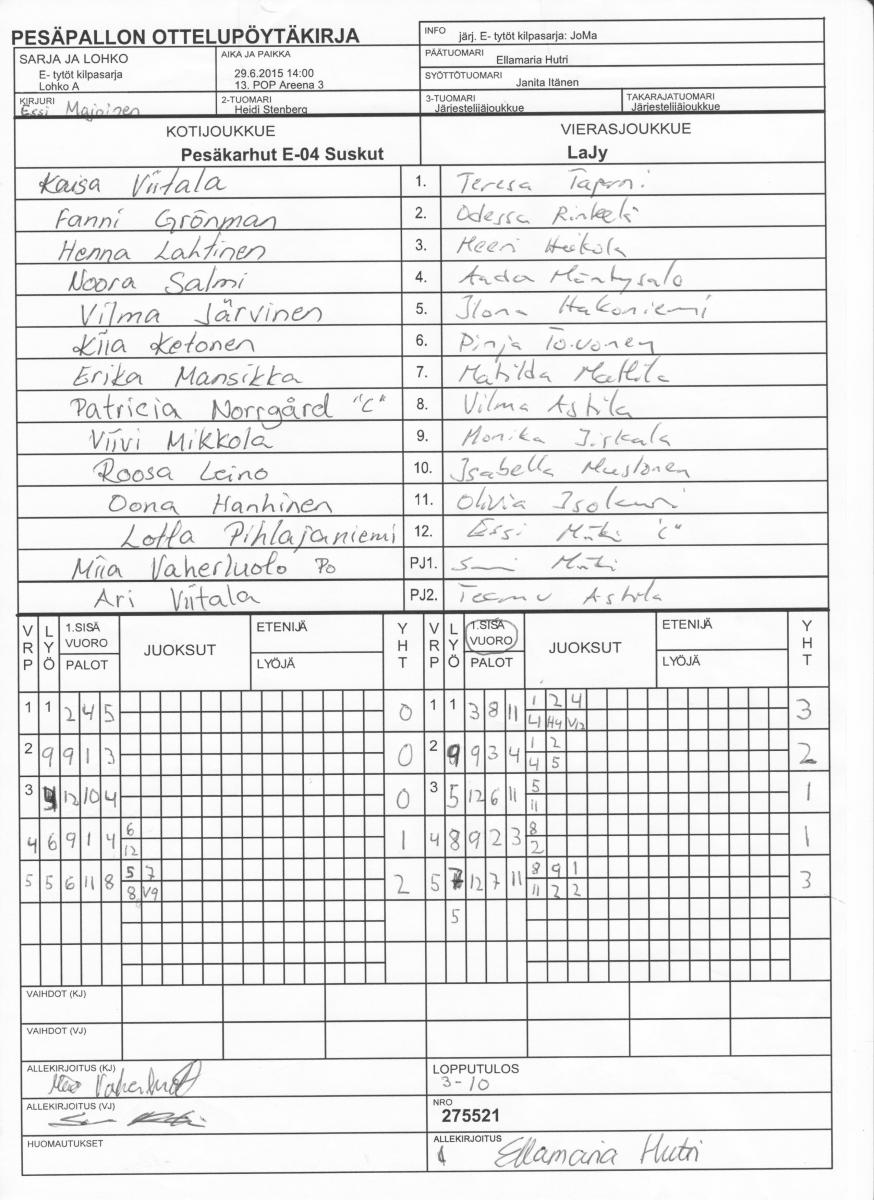 PESÄPALLON OTTELUPÖYTÄKIRJA
INFO järj. E- tytöt kilpasarja: JoMa
SARJA JA LOHKO
E- tytöt kilpasarja
Lohko A
AIKA JA PAIKKA
29.6.2015 14:00
13. POP Areena 3
PÄÄTUOMARI Ellamaria Hutri
SYÖTTÖTUOMARI Janita Itänen
KIRJURI
Essi Majninen
2-TUOMARI
Heidi Stenberg
3-TUOMARI
Järjestelijäjoukkue
TAKARAJATUOMARI
Järjestelijäjoukkue
KOTIJOUKKUE VIERASJOUKKUE
Pesäkarhut E-04 Suskut LaJy
Kaisa Viitala 1. Teresa Tapani
Fanni Grönman 2. Odessa Rinkelä
Henna Lahtinen 3. Meeri Heikola
Noora Salmi 4. Aada Mäntysalo
Vilma Järvinen 5. Ilona Hakoniemi
Kiia Ketonen 6. Pinja Toivonen
Erika Mansikka 7. Matilda Mattila
Patricia Norrgård "C" 8. Vilma Astila
Viivi Mikkola 9. Monika
Roosa Leino 10. Isabella Mustonen
Oona Hanhinen 11. Olivia
Lotta Pihlajaniemi 12. Essi Mäki "C"
Miia Vaherluoto Po PJ1. Mäki
Ari Viitala PJ2. Teemu Astila
VRP LYÖ 1.SISÄ VUORO PALOT JUOKSUT ETENIJÄ LYÖJÄ YHT VRP LYÖ 1.SISÄ VUORO PALOT JUOKSUT ETENIJÄ LYÖJÄ YHT
1 1 2 4 5 0 1 1 3 8 11 1 2 4 3
L1 H4 V12
2 9 9 1 3 0 2 9 9 3 4 1 2 2
4 5
3 4 12 10 4 0 3 5 12 6 11 5 1
11
4 6 9 1 4 6 1 4 8 9 2 3 8 1
12 2
5 5 6 11 8 5 7 2 5 7 12 7 11 8 9 1 3
8 V9 11 2 2
5
VAIHDOT (KJ)
VAIHDOT (VJ)
ALLEKIRJOITUS (KJ)
Miia Vaherluoto
LOPPUTULOS
3-10
ALLEKIRJOITUS (VJ)
NRO
275521
HUOMAUTUKSET
ALLEKIRJOITUS
Ellamaria Hutri